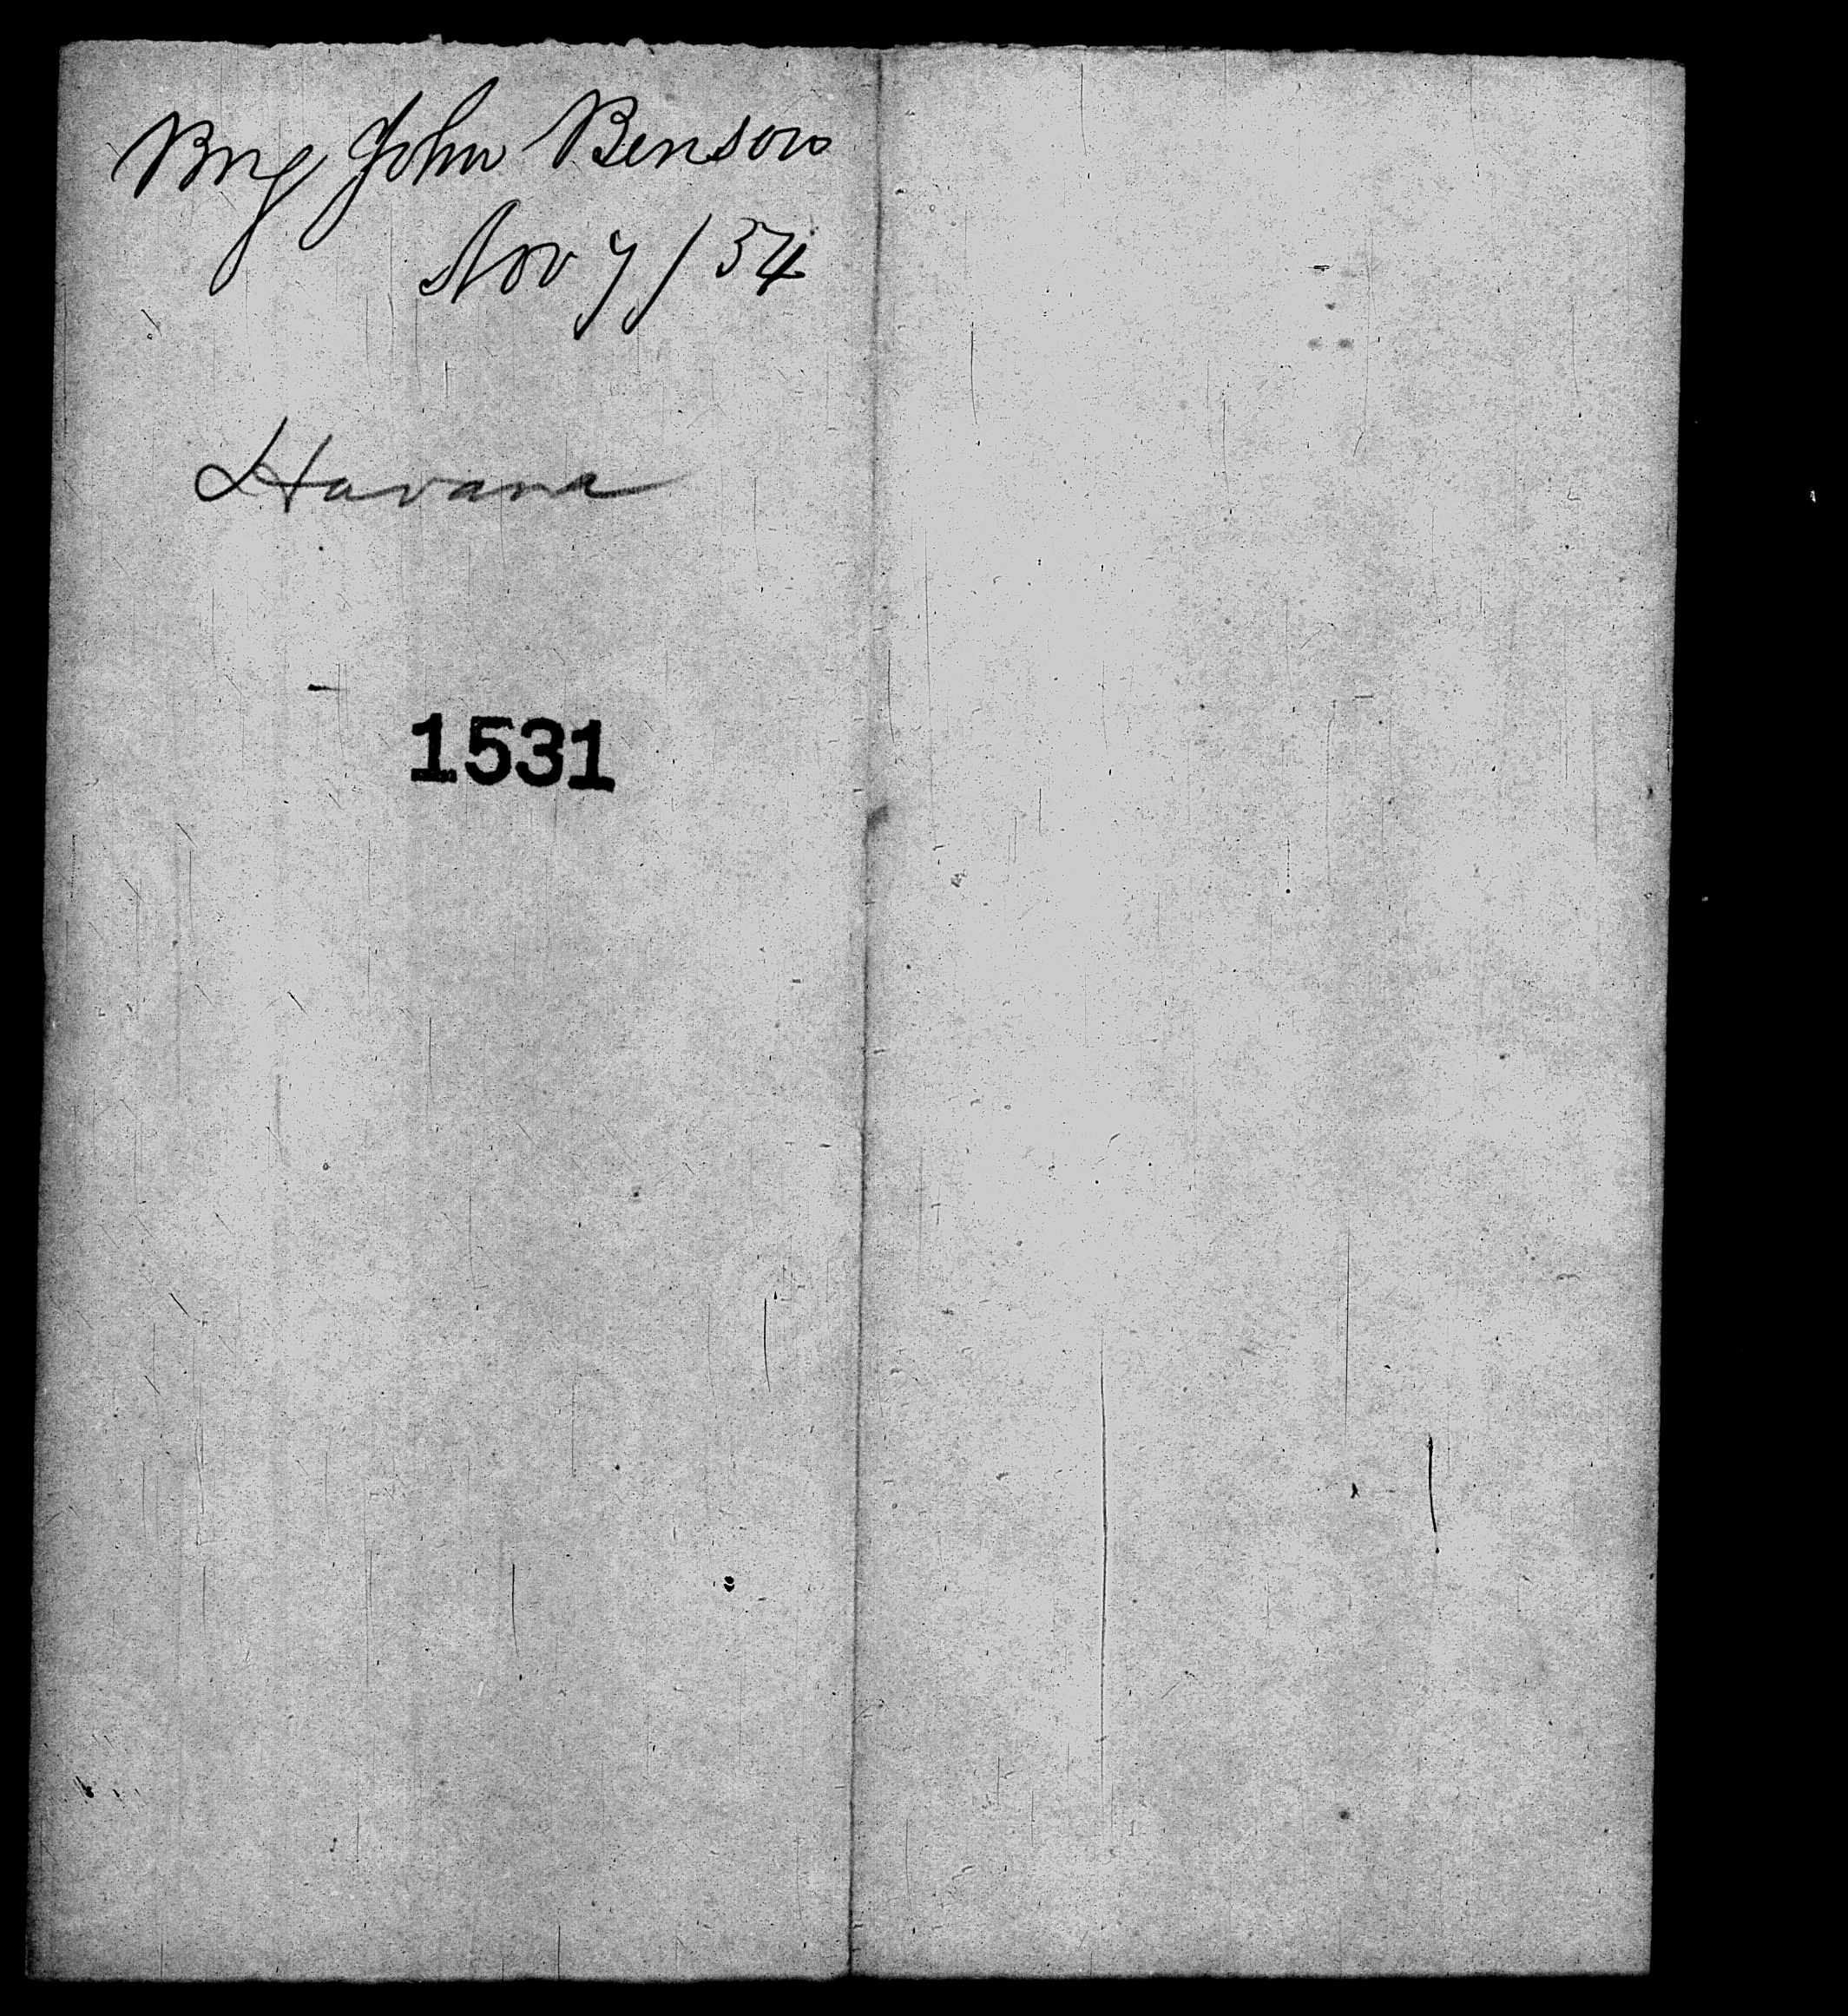 Brig John Benson
Nov 7/54
Havana
1531